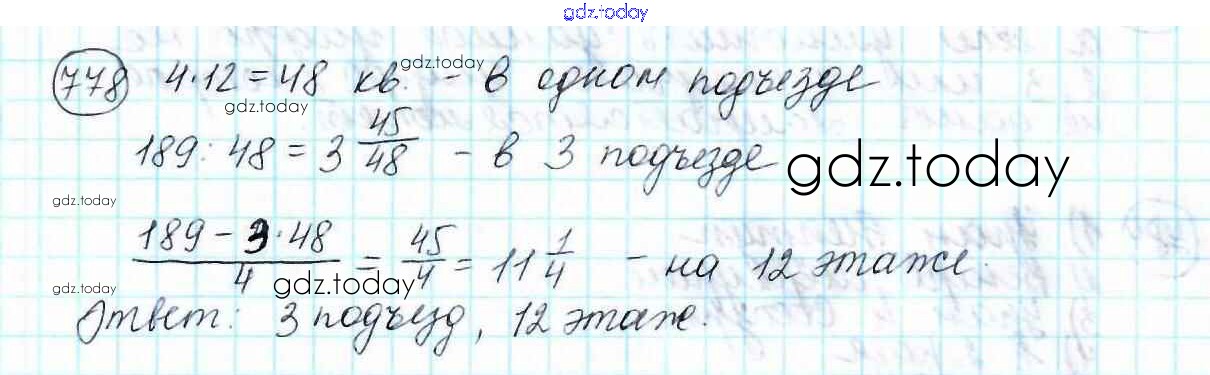 gdz.today
778 4·12 = 48 кв. – в одном подъезде
gdz.today
gdz.today
189 : 48 = 3 45/48 – в 3 подъезде
gdz.today
gdz.today
(189 – 3·48)/4 = 45/4 = 11 1/4 – на 12 этаже.
gdz.today
gdz.today
Ответ: 3 подъезд, 12 этаже.